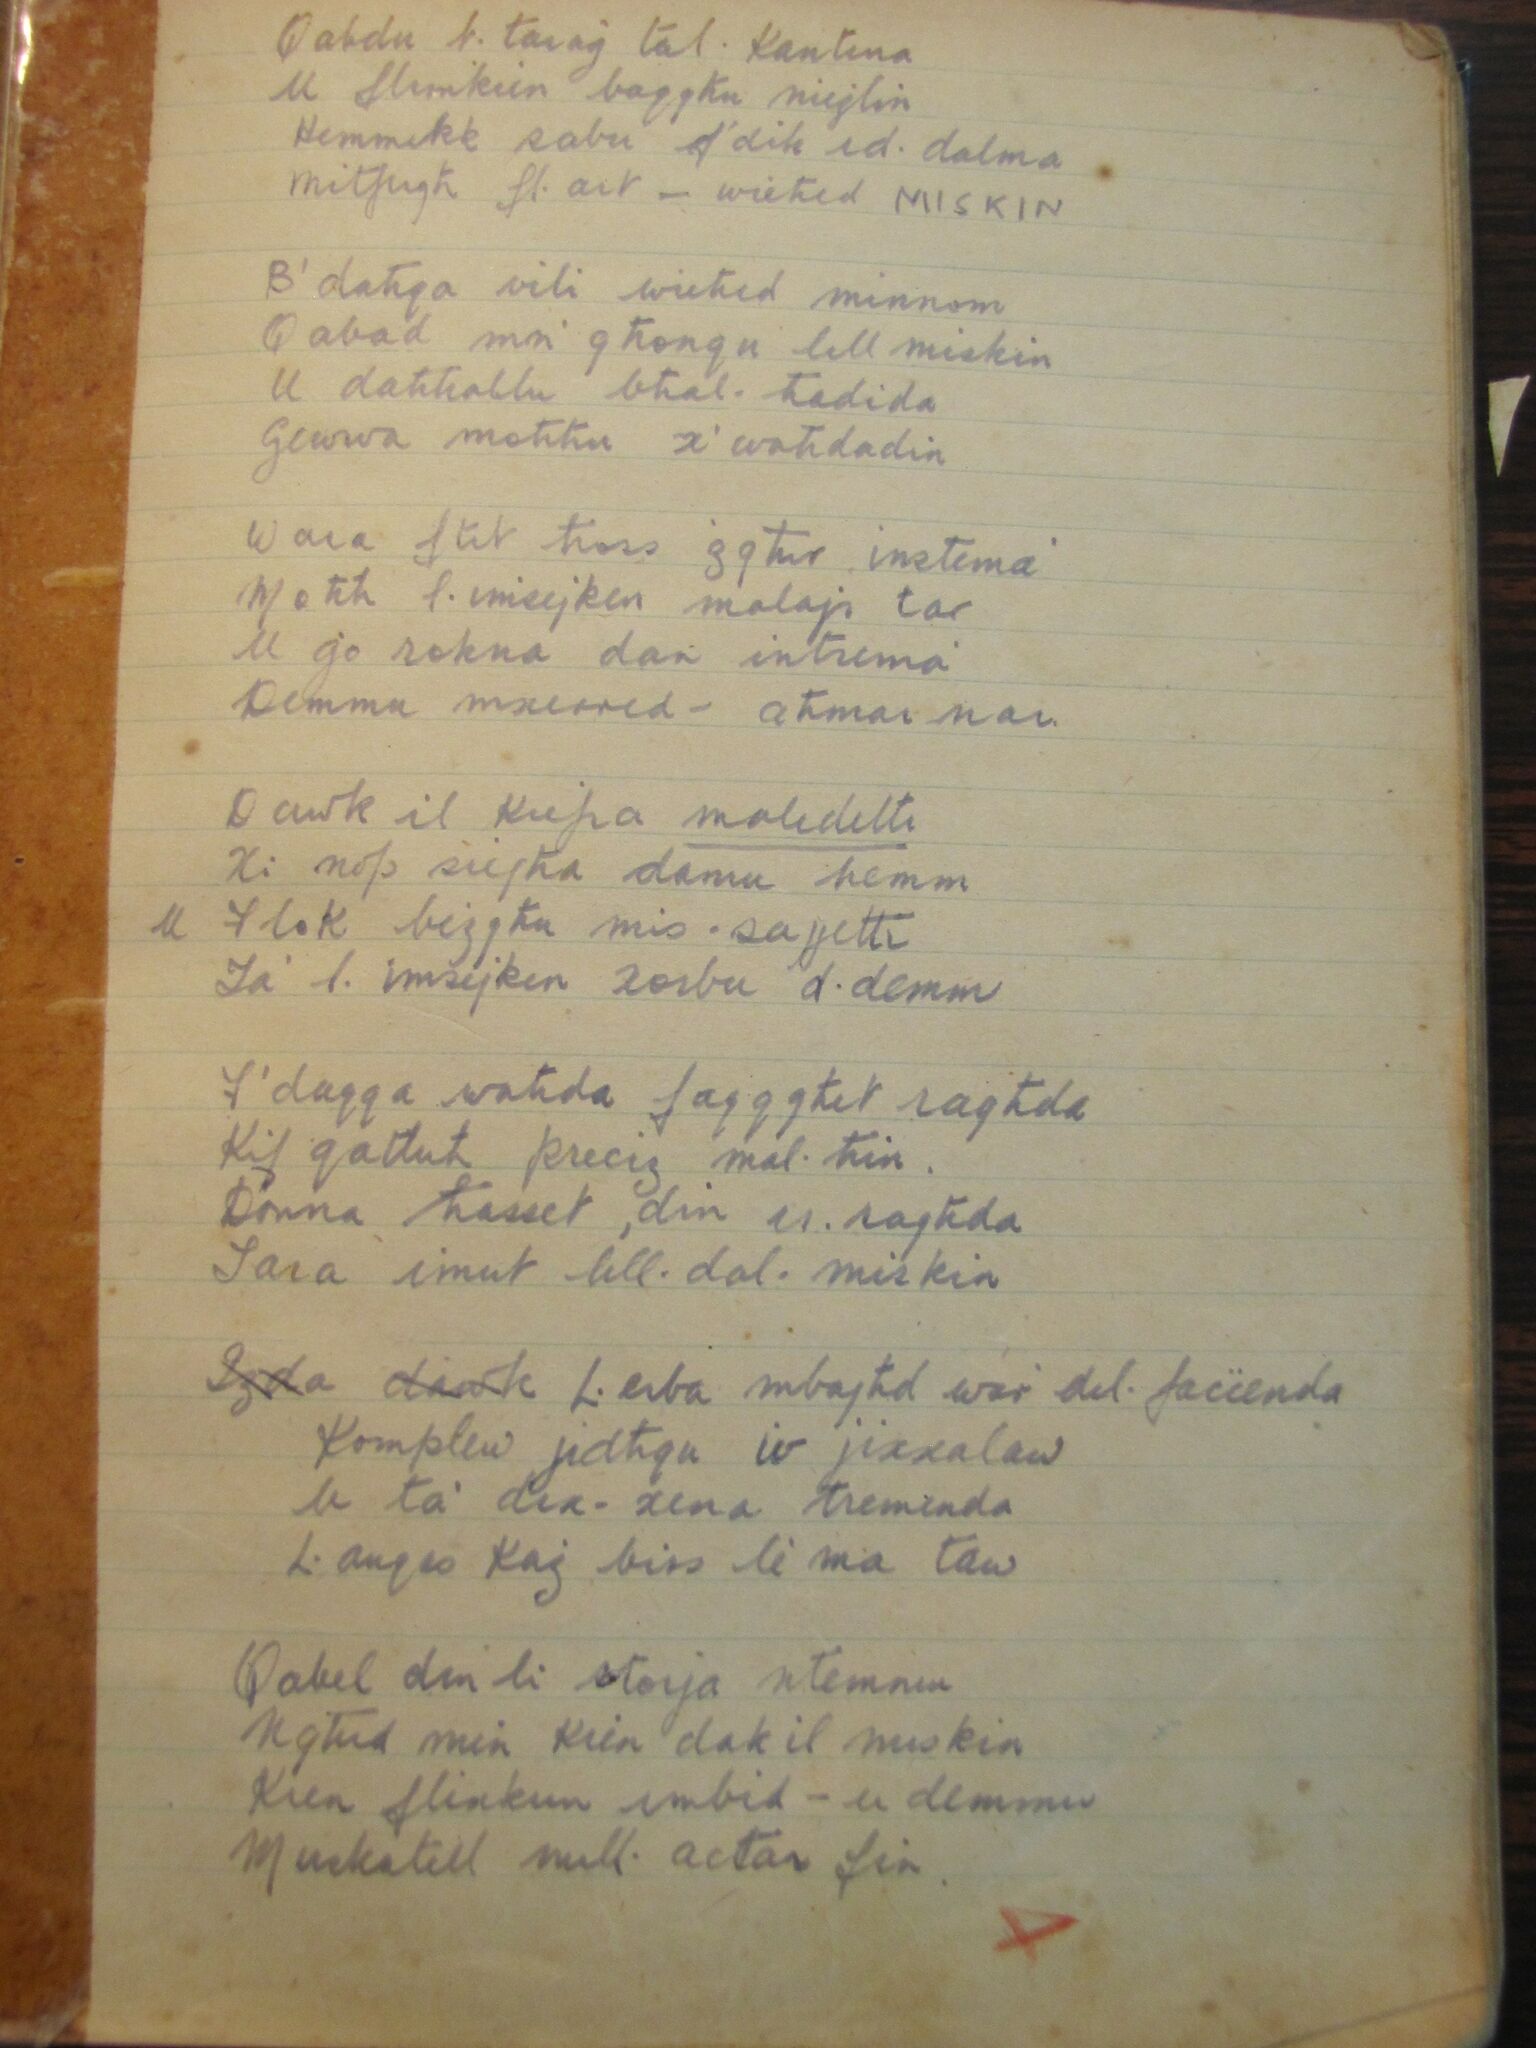 Qabdu t. taraġ tal. Kantina
U flimkien baqgħu nieżlin
Hemmekk sabu f'dik id. dalma
Mitfugħ fl. art - wieħed MISKIN

B'daħqa vili wieħed minnom
Qabad min għonqu lill miskin
U daħħallu bħal. ħadida
Ġewwa moħħu x'waħdadin

Wara ftit ħoss żgħir instema'
Moħħ l. imsejken malajr tar
U ġo rokna dan intrema'
Demmu mxerred - aħmar nar.

Dawk il Kiefra maledetti
Xi nofs siegħa damu hemm
U Flok beżgħu mis. sajjetti
Ta' l. imsejken xorbu d. demm

F'daqqa waħda faqqgħet ragħda
Kif qattuħ preċiż mal. ħin.
Donna ħasset, din ir. ragħda
Tara imut lill. dal. miskin

L. erba mbagħd war' dil. faċċenda
Komplew jidħqu iv jixxalaw
U ta' dix- xena tremenda
L. anqas Każ biss li ma taw

Qabel din li storja ntemmu
Ngħid min Kien dak il miskin
Kien flixkun imbid - u demmu
Muskatell mill. actar fin.